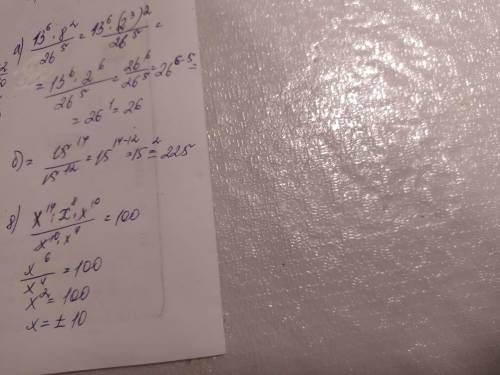 а) 13⁶ · 8² / 26⁵ = 13⁶ · (2³)² / 26⁵ =
= 13⁶ · 2⁶ / 26⁵ = 26⁶ / 26⁵ = 26⁶⁻⁵ =
= 26¹ = 26
б) = 15¹⁴ / 15¹² = 15¹⁴⁻¹² = 15² = 225
в) x¹⁴ : x⁸ · x¹⁰ / x¹⁰ · x⁴ = 100
x⁶ / x⁴ = 100
x² = 100
x = ± 10